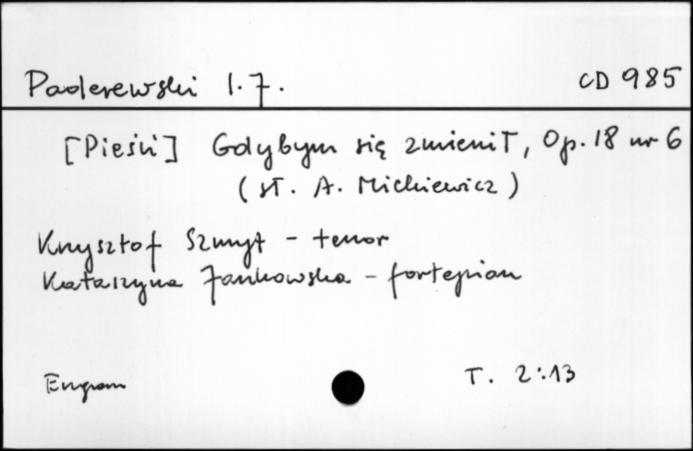 Paderewski I.J.
CD 985
[Pieśń] Gdybym się zmienił, Op. 18 nr 6
(sł. A. Mickiewicz)
Krzysztof Szmyt - tenor
Katarzyna Jankowska - fortepian
Engram
T. 2:13